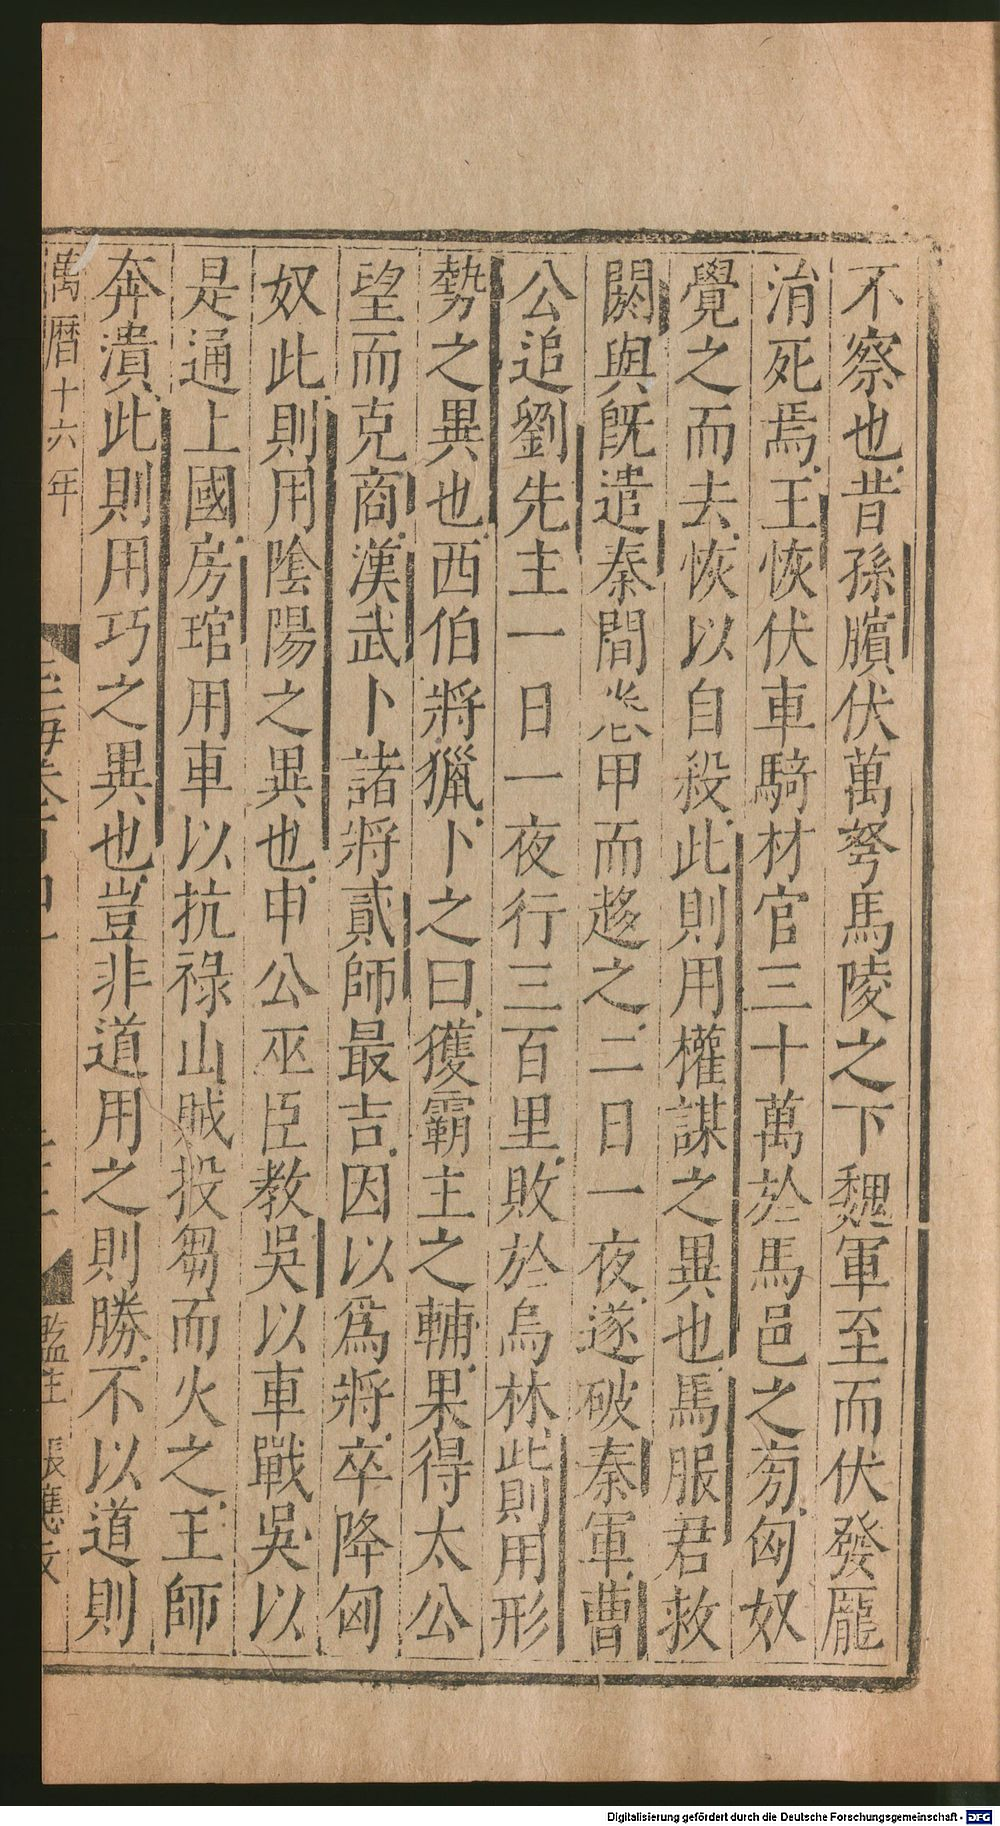 不察也昔孫臏伏萬弩馬陵之下魏軍至而伏發龐
涓死焉王恢伏車騎材官三十萬於馬邑之旁匈奴
覺之而去恢以自殺此則用權謀之異也馬服君救
閼與既遣秦間卷甲而趍之二日一夜遂破秦軍曹
公追劉先主一日一夜行三百里敗於烏林此則用形
勢之異也西伯將獵卜之曰獲霸主之輔果得太公
望而克商漢武卜諸將貳師最吉因以爲將卒降匈
奴此則用陰陽之異也申公巫臣教吳以車戰吳以
是通上國房琯用車以抗祿山賊投芻而火之王師
奔潰此則用巧之異也豈非道用之則勝不以道則
萬曆十六年
Digitalisierung gefördert durch die Deutsche Forschungsgemeinschaft - DFG